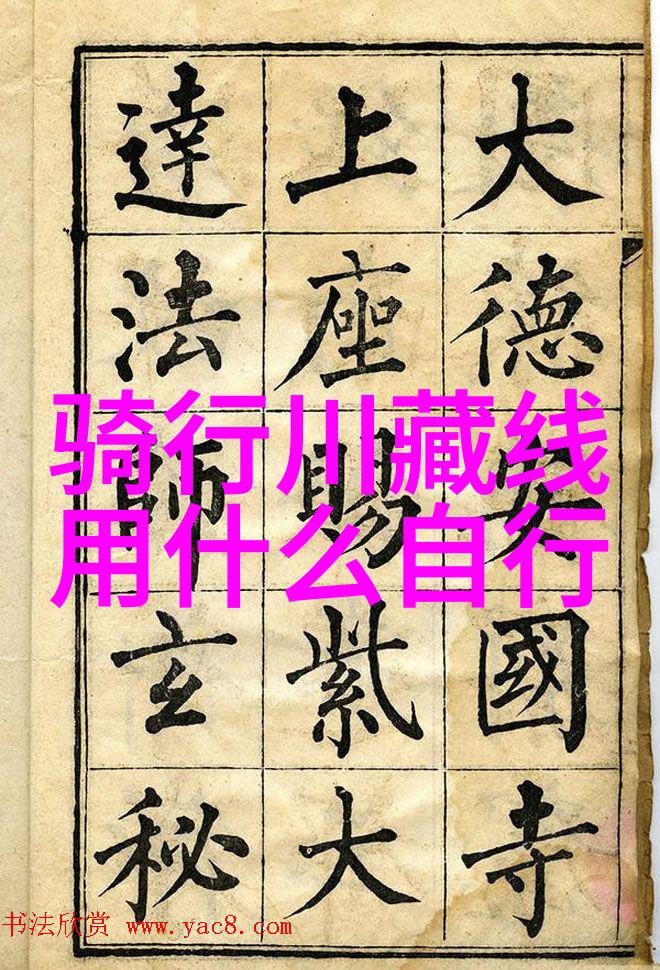 大德安國寺
上座賜紫大
達法師玄秘
骑行川藏线
用什么自行
书法欣赏 www.yac8.com